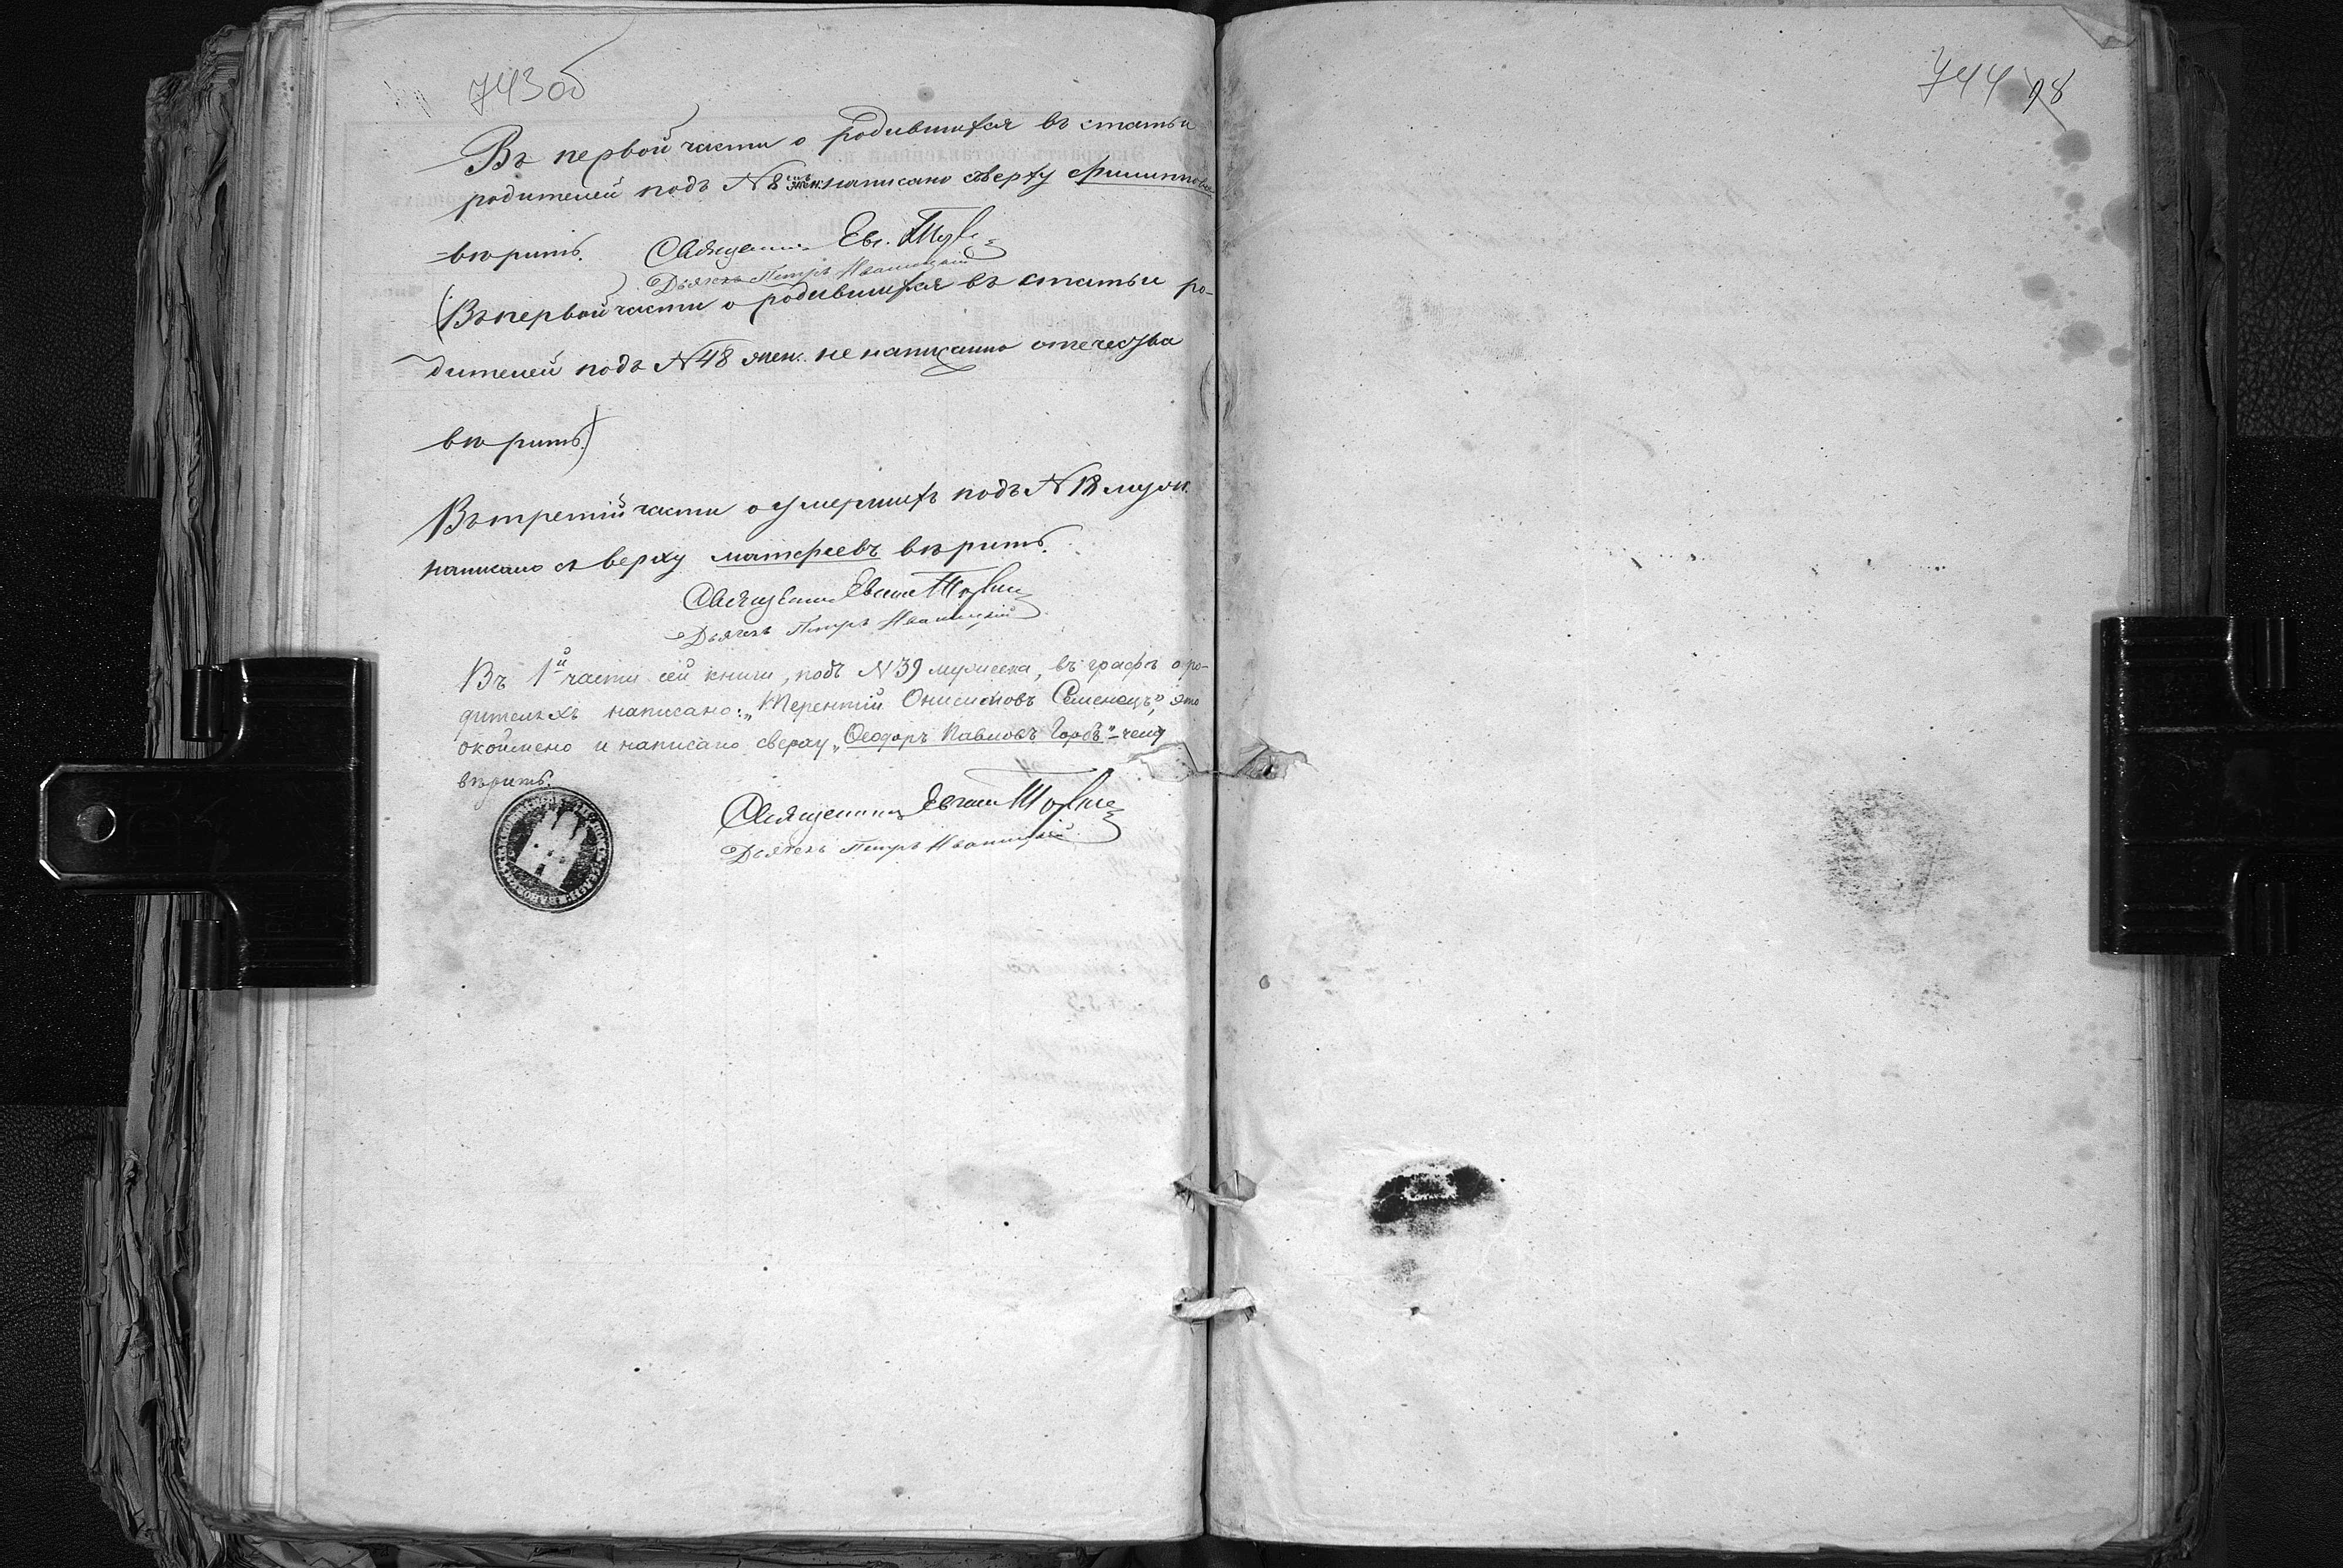 743об
Въ первой части о родившихся въ статьи
родителей подъ N 8 жен. написано сверху Филиппова
вѣрить. Священникъ Евг.
Дьячекъ Петръ Иваницкій
(Въ первой части о родившихся въ статьи ро-
дителей подъ N 48 жен. не написанно отечества
вѣрить.)
Въ третій части о умершихъ подъ N 18 муж.
написано съ верху матфеевъ вѣрить.
Священникъ Евгеній
Дьячекъ Петръ Иваницкій
Въ 1й части сей книги, подъ N 39 мужеска, въ графѣ о ро-
дителяхъ написано: „Терентій Онисимовъ Семенецъ", это
окоймено и написано сверху „Ѳеодоръ Павловъ Горбъ" – чему
вѣрить.
Священникъ Евгеній
Дьячекъ Петръ Иваницкій
744 98